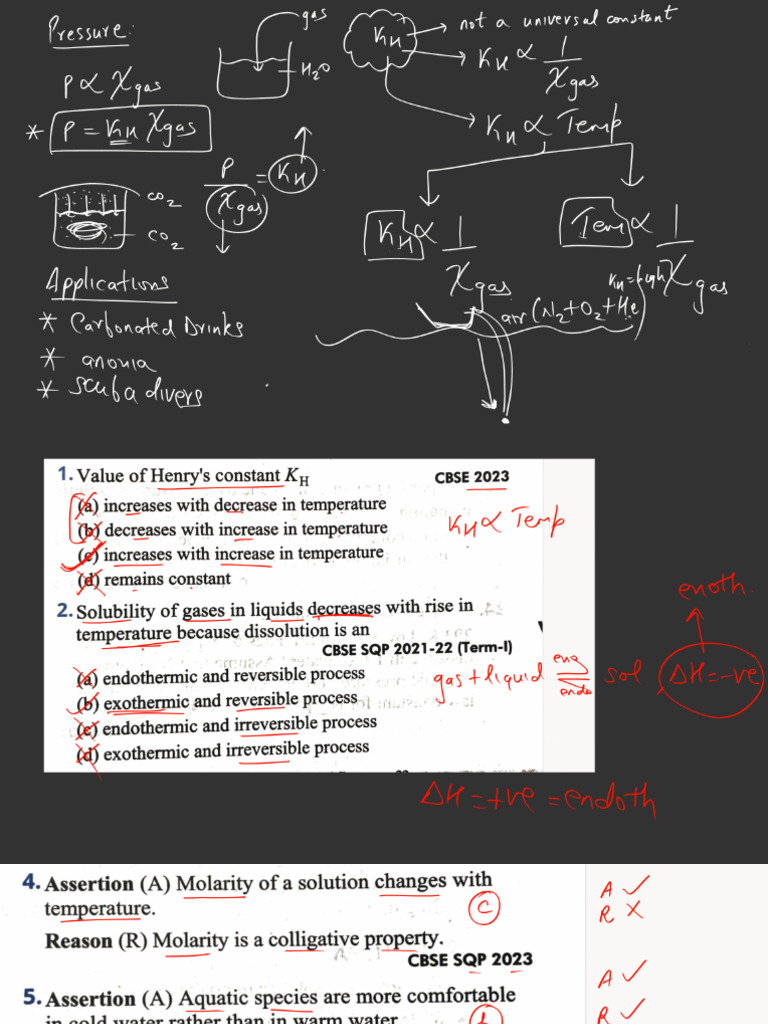 Pressure:
gas
H₂O
K_H
not a universal constant
K_H ∝ 1/χgas
K_H ∝ Temp
P ∝ χgas
* P = K_H χgas
P/χgas = K_H
CO₂
CO₂
K_H ∝ 1/χgas
Tem ∝ 1/χgas
K_H = high
air (N₂+O₂+He)
Applications
* Carbonated Drinks
* anoxia
* scuba divers
1. Value of Henry's constant K_H
CBSE 2023
(a) increases with decrease in temperature
(b) decreases with increase in temperature
(c) increases with increase in temperature
(d) remains constant
K_H ∝ Temp
2. Solubility of gases in liquids decreases with rise in
temperature because dissolution is an
CBSE SQP 2021-22 (Term-I)
(a) endothermic and reversible process
(b) exothermic and reversible process
(c) endothermic and irreversible process
(d) exothermic and irreversible process
gas + liquid
eno
endo
sol
ΔH = -ve
enoth.
ΔH = +ve = endoth
4. Assertion (A) Molarity of a solution changes with
temperature.
Reason (R) Molarity is a colligative property.
CBSE SQP 2023
C
A ✓
R ✗
5. Assertion (A) Aquatic species are more comfortable
in cold water rather than in warm water.
A ✓
R ✓